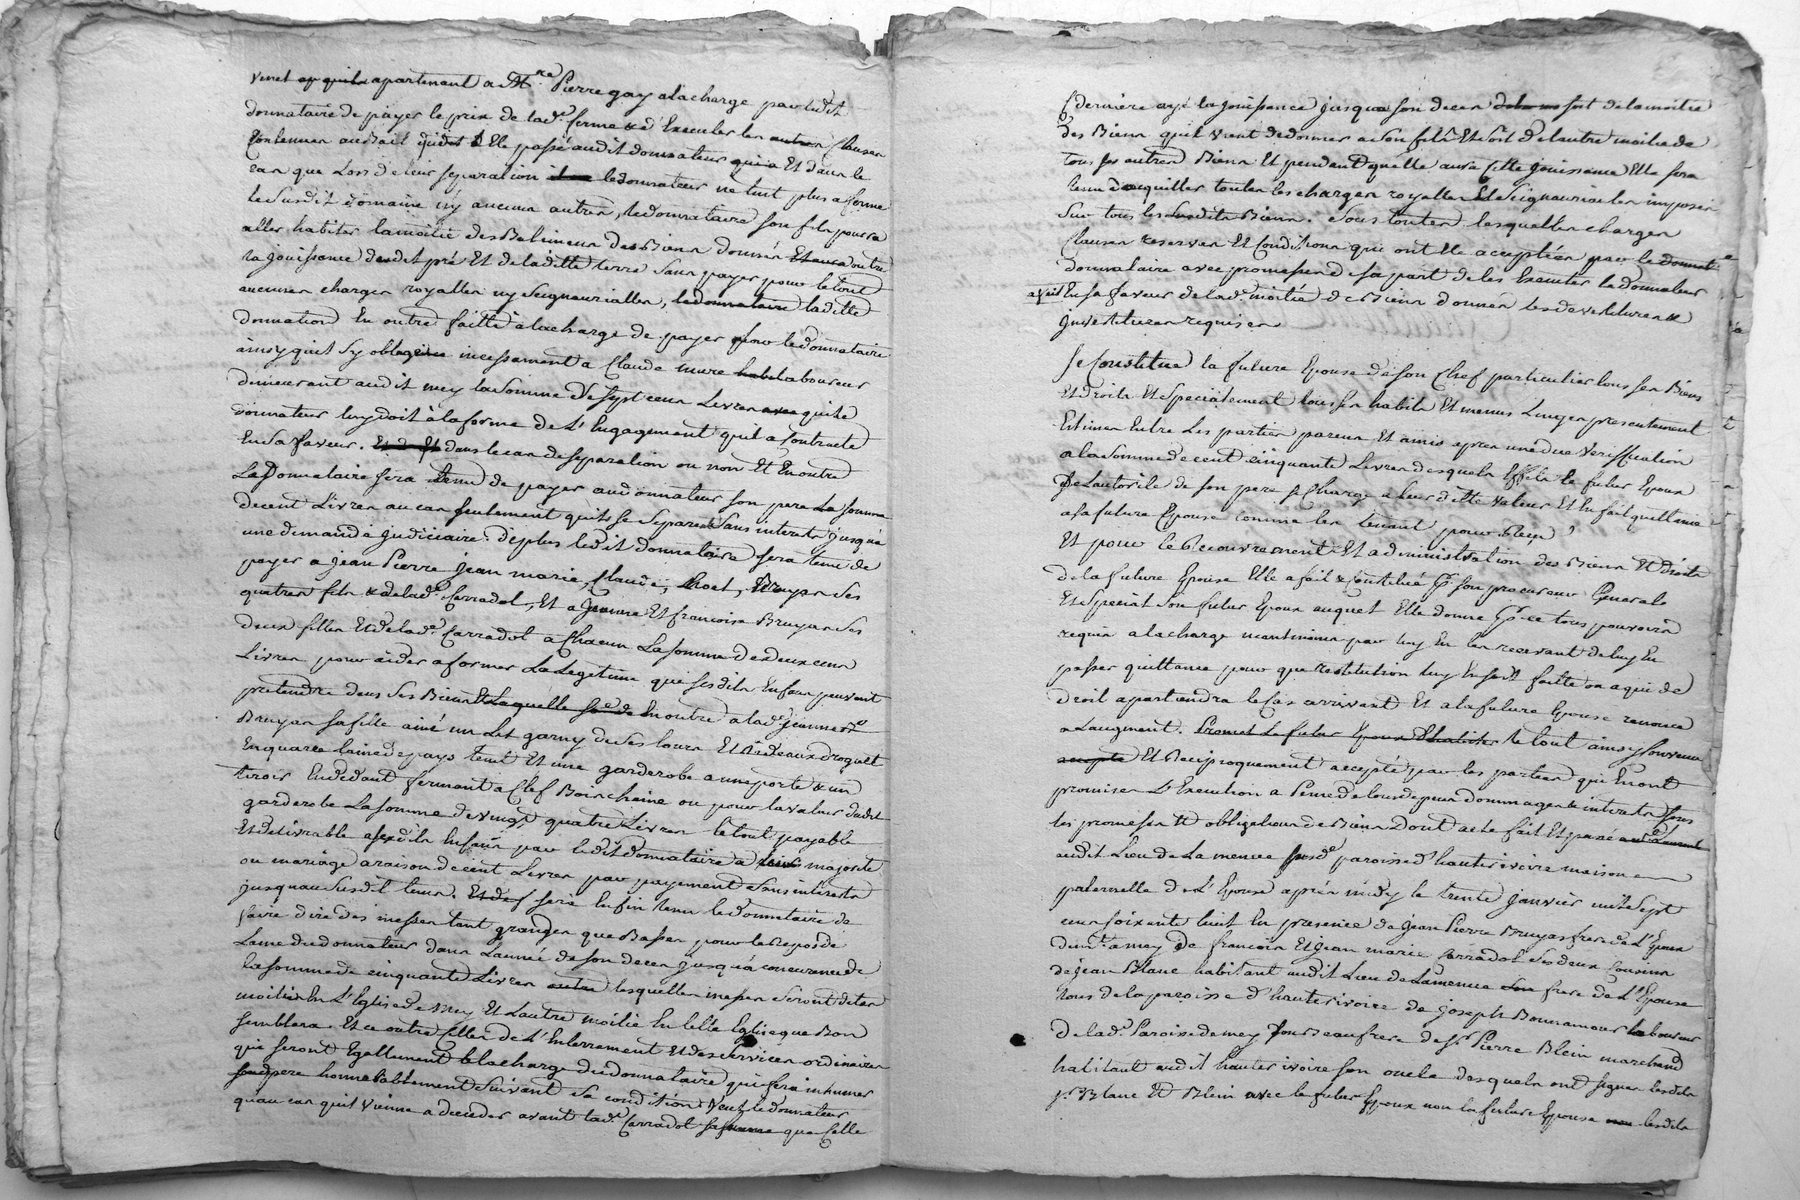 apartenant a Mtre Pierre gay a la charge par ledit
donnataire de payer le prix de lad.e ferme & d'Executer les autres Clauses
Contenues au Bail passé audit donnateur Et dans le
cas que Lors de leur separation le donnateur ne tint plus a ferme
le Susdit domaine ny aucuns autres, le donnataire son fils pourra
aller habiter la moitié des Batimens des Biens donnés outre
la jouissance dudit pré Et de laditte terre Sans payer pour le tout
aucunes charges royalles ny Seigneurialles, laditte
donnation En outre faitte à la charge de payer pour le donnataire
ainsy quil Sy oblige incessament a Claude mure laboureur
demeurant audit mey la Somme De Sept cens Livres que le
donnateur luy doit à la forme de L'Engagement quil a Contracté
En Sa faveur. dans le cas de Separation ou non Et En outre
Le Donnataire Sera tenu de payer au donnateur son pere La somme
de cent Livres au cas seulement quils se Separent Sans interets jusqua
une demande judiciaire. De plus ledit donnataire sera tenu de
payer a jean Pierre, jean marie, Claude, Bruyas Ses
quatres fils & de lad.e Carradot, Et a Jeanne Et francoise Bruyas Ses
deux filles Et de lad.e Carradot a Chacun La somme de deux cens
Livres pour aider a former La Legitime que sesdits Enfans peuvent
pretendre dans Ses Biens En outre a lad.e jeanne
Bruyas sa fille ainé un Lit garny de Ses tours Et Rideaux droguet
En quarré laine de pays teint Et une garderobe a une porte & un
tiroir En dedant fermant a Clef Bois chaine ou pour la valeur dudit
garderobe La somme de vingt quatre Livres le tout payable
Et delivrable a sesdits Enfans par ledit donnataire a majorité
ou mariage a raison de cent Livres par payement Sans interets
jusquau Susdit tems. Sera Enfin tenu le donnataire de
faire dire des messes tant grandes que Basses pour le Repos de
Lame du donnateur dans Lannée de son deces jusqu'à concurence de
la somme de cinquante Livres lesquelles messes Seront dites
moitié En L'Eglise de mey Et Lautre moitié En telle Eglise que Bon
semblera Et ce outre Celles de L'Enterrement Et des Services ordinaires
qui seront Egallement a la charge du donnataire qui fera inhumer
son pere honnorablement Suivant Sa condition, Veut le donnateur
quau cas quil Vienne a deceder avant lad.e Carradot sa femme que Celle
derniere ayé la jouissance jusqua son deces soit de la moitié
des Biens quil Vient de donner a Son fils Et soit de lautre moitié de
tous ses autres Biens Et pendant quelle aura cette jouissance Elle sera
tenue d'acquitter toutes les charges royalles Et Seigneurialles imposées
Sur tous les Susdits Biens. Sous toutes lesquelles charges
Clauses reserves Et Conditions qui ont Eté acceptées par le
donnataire avec promesse de sa part de les Executer le donnateur
a fait En sa faveur de lad.e moitié de Biens donnés les devestitures &
investitures requises
Se Constitue la future Epouse de son Chef particulier tous ses Biens
Et droits Et Specialement tous ses habits Et menus Linges presentement
Estimés Entre Les parties parens Et amis apres une due Veriffication
a la somme de cent cinquante Livres desquels Effets le futur Epoux
De Lautorité de son pere se Charge a leur ditte Valeur Et En fait quittance
a sa future Epouse comme les tenant pour Reçu
Et pour le Recouvrement Et administration des Biens Et droits
de la future Epouse Elle a fait & Constitué P.r son procureur General
Et Special Son futur Epoux auquel Elle donne P.r ce tous pouvoirs
requis a la charge neantmoins par luy En les recevant de luy En
passer quittance pour que restitution luy En soit faitte ou a qui de
droit apartiendra le Cas arrivant Et a la future Epouse renoncé
a Laugment. le tout ainsy Convenu
Et Reciproquement accepté par les parties qui En ont
promises L'Execution a Peine de tous depens dommages & interets Sous
les promesses Et obligations de Biens Dont acte fait Et passé
audit Lieu de La menue paroisse d'hauterivoire maison
paternelle de L'Epouse après midy le trente janvier mil Sept
cens soixante huit En presence de jean Pierre Bruyas frere de L'Epoux
demt. a mey De francois Et jean marie Carradot Ses deux Cousins
de jean Blanc habitant audit Lieu de Lamenue frere de L'Epouse
tous de la paroisse d'hauterivoire de joseph Bonnamour laboureur
de lad.e Paroisse de mey Son Beaufrere de Sr. Pierre Blein marchand
habitant audit hauterivoire son oncle desquels ont signé lesdits
Srs. Blanc Et Blein avec le futur Epoux non la future Epouse lesdits